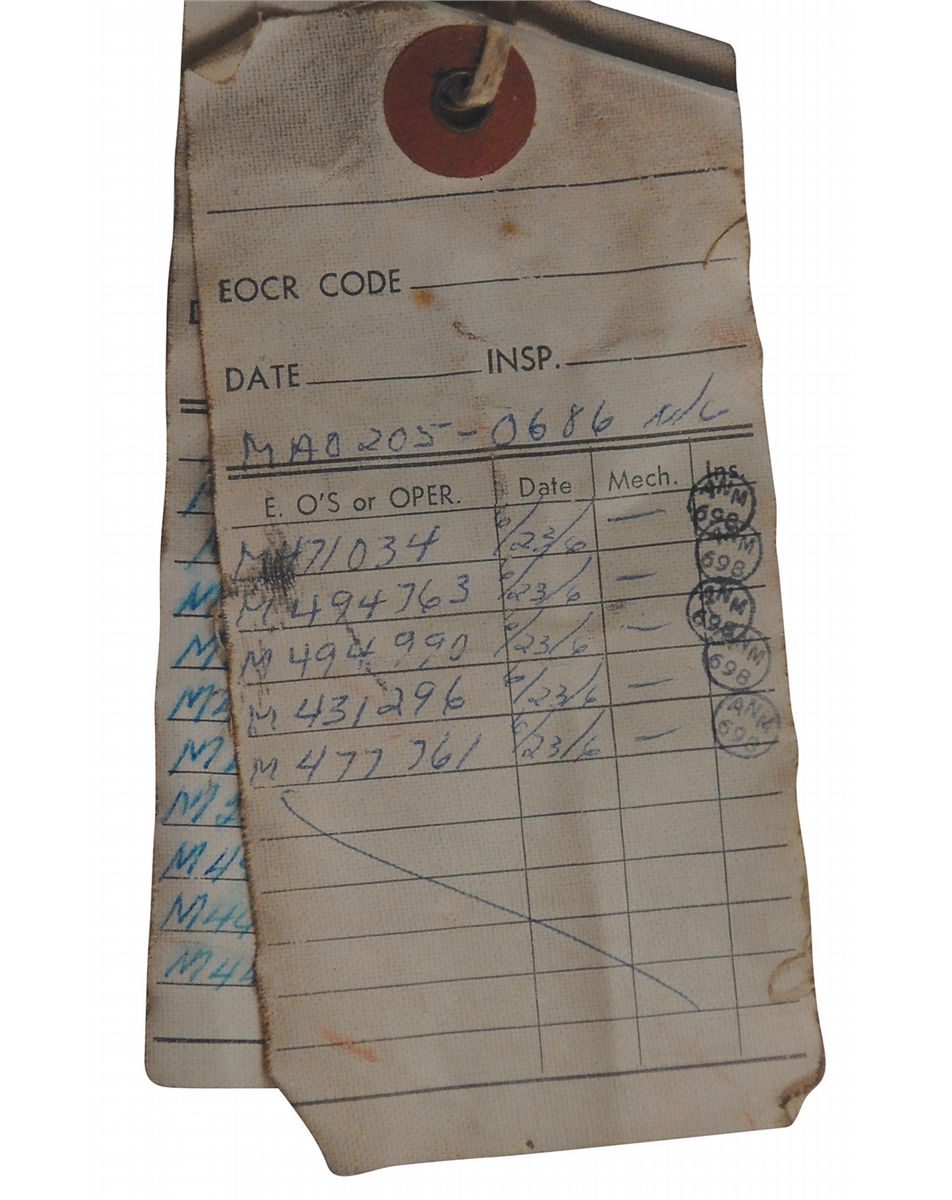 EOCR CODE
DATE INSP.
MA0205-0686 N/C
E. O'S or OPER. Date Mech. Ins.
M471034 6/23/6 — ANM 698
M494763 6/23/6 — ANM 698
M494990 6/23/6 — ANM 698
M431296 6/23/6 — ANM 698
M477761 6/23/6 — ANM 698
M
M
M4
M
M
M44
M44
M44